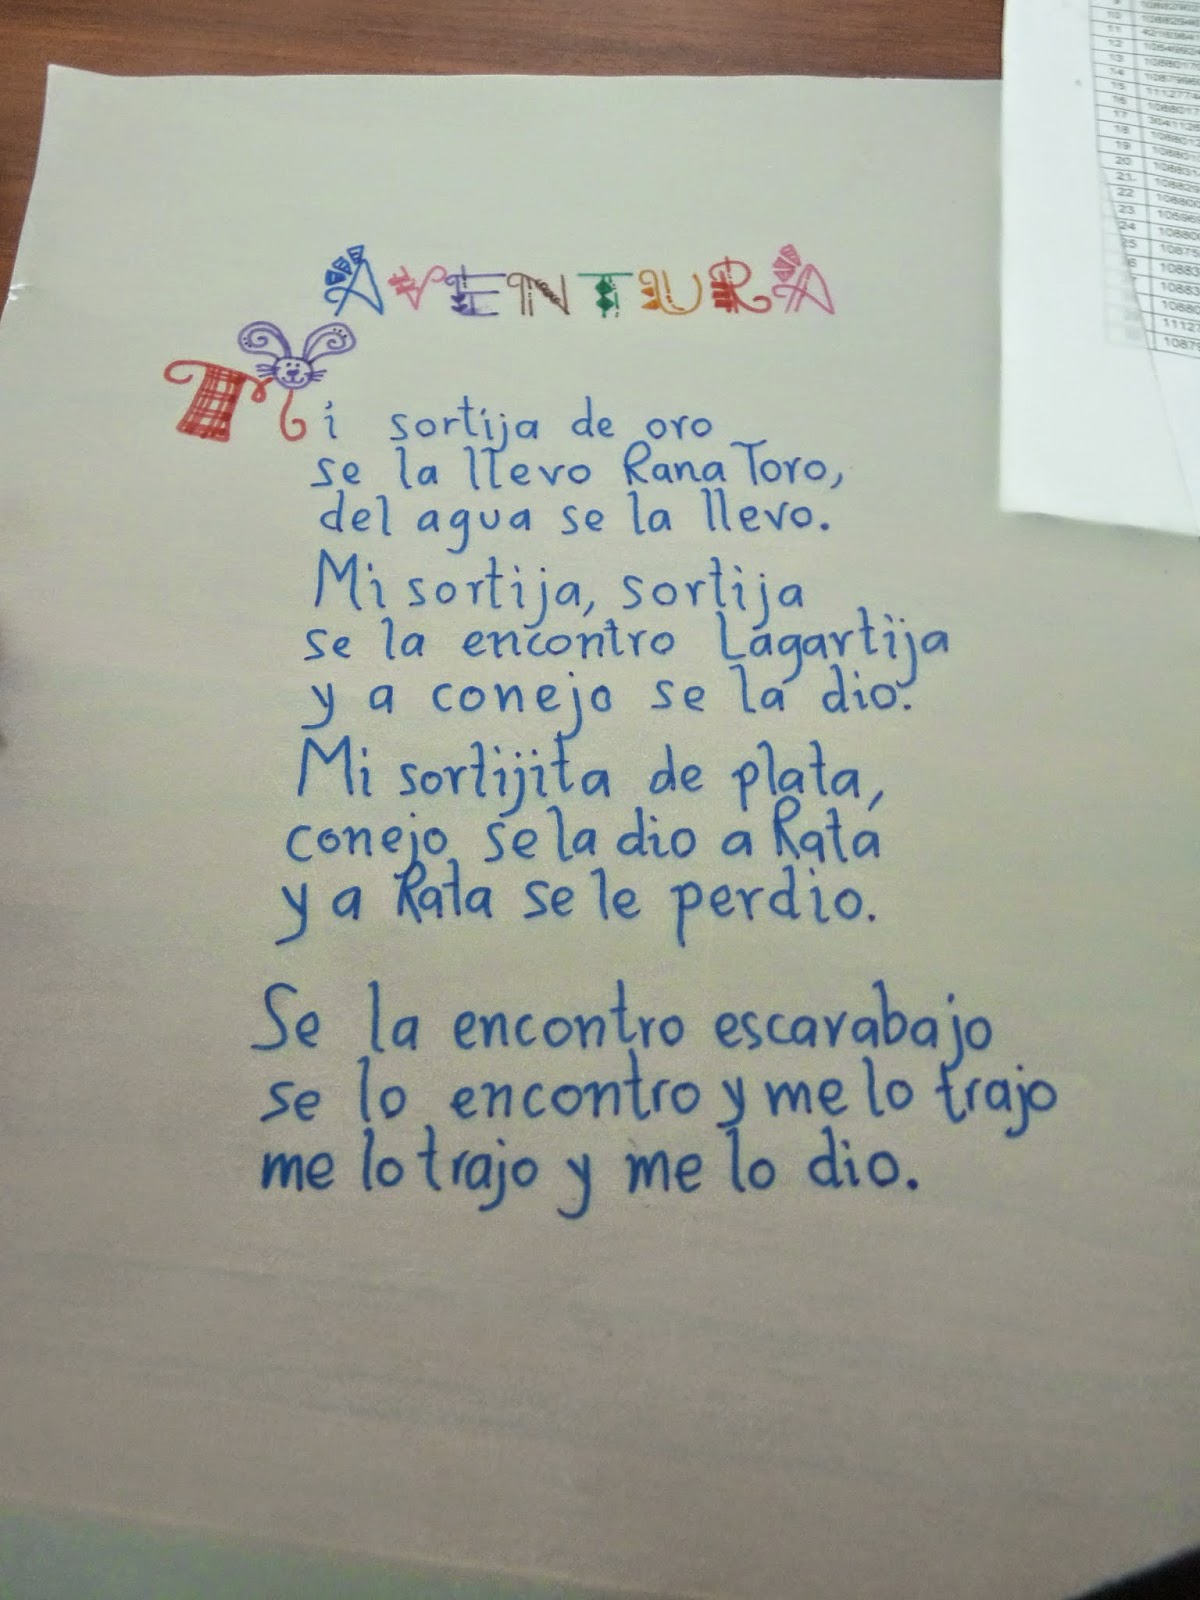 AVENTURA
Mi sortija de oro
se la llevo Rana Toro,
del agua se la llevo.
Mi sortija, sortija
se la encontro Lagartija
y a conejo se la dio.
Mi sortijita de plata,
conejo se la dio a Rata
y a Rata se le perdio.
Se la encontro escarabajo
se lo encontro y me lo trajo
me lo trajo y me lo dio.
12
13
14
15
16
17
18
19
20
21
22
23